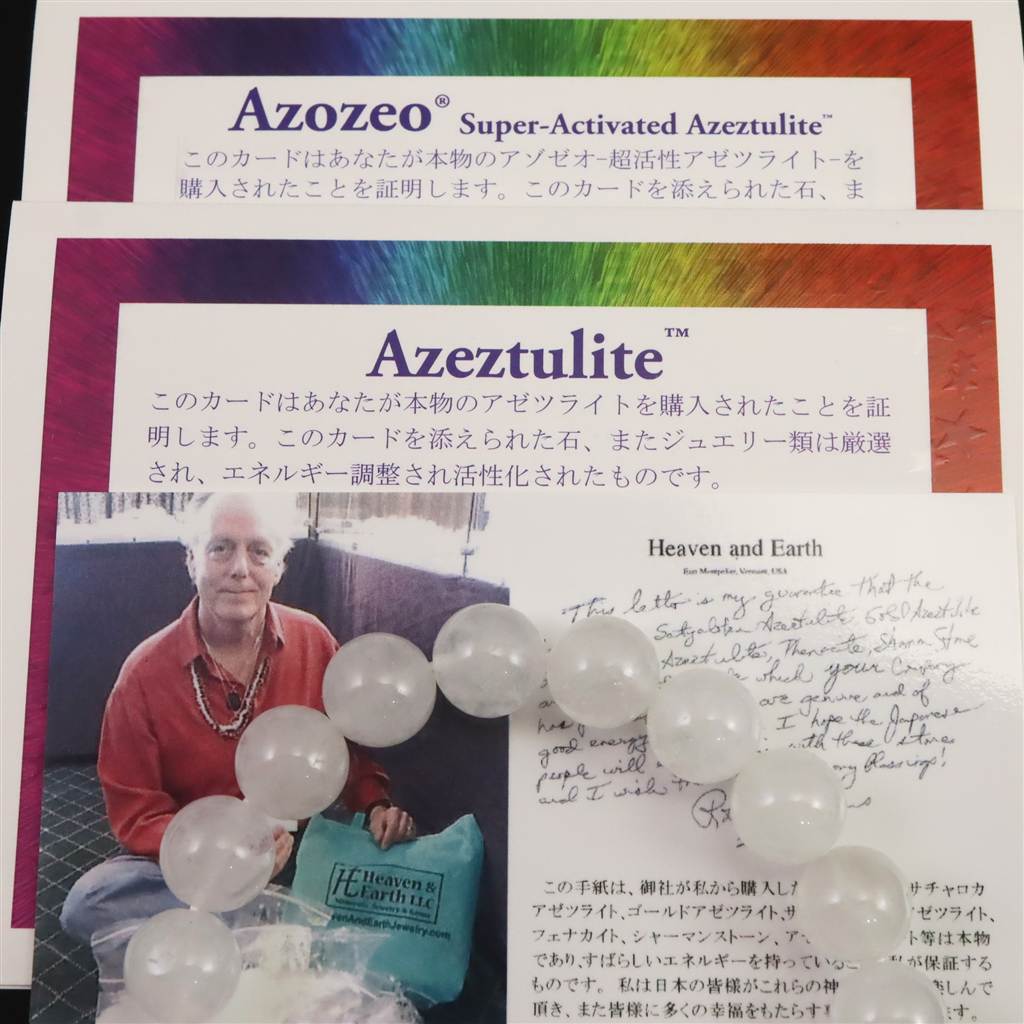 Azozeo® Super-Activated Azeztulite™
このカードはあなたが本物のアゾゼオ-超活性アゼツライト-を
購入されたことを証明します。このカードを添えられた石、ま
Azeztulite™
このカードはあなたが本物のアゼツライトを購入されたことを証
明します。このカードを添えられた石、またジュエリー類は厳選
され、エネルギー調整され活性化されたものです。
Heaven and Earth
East Montpelier, Vermont, USA
This letter is my guarantee that the
Satyaloka Azeztulite, Gold Azeztulite
Azeztulite, Phenacite, Shaman Stone
which your Company
are genuine and of
I hope the Japanese
good energy with these stones
people will my Blessings!
and I wish
HE Heaven &
Earth LLC
Minerals, Jewelry & Gems
venAndEarthJewelry.com
この手紙は、御社が私から購入し サチャロカ
アゼツライト、ゴールドアゼツライト、サ ゼツライト、
フェナカイト、シャーマンストーン、ア ト等は本物
であり、すばらしいエネルギーを持っている 私が保証する
ものです。 私は日本の皆様がこれらの神 楽しんで
頂き、また皆様に多くの幸福をもたらす ます。